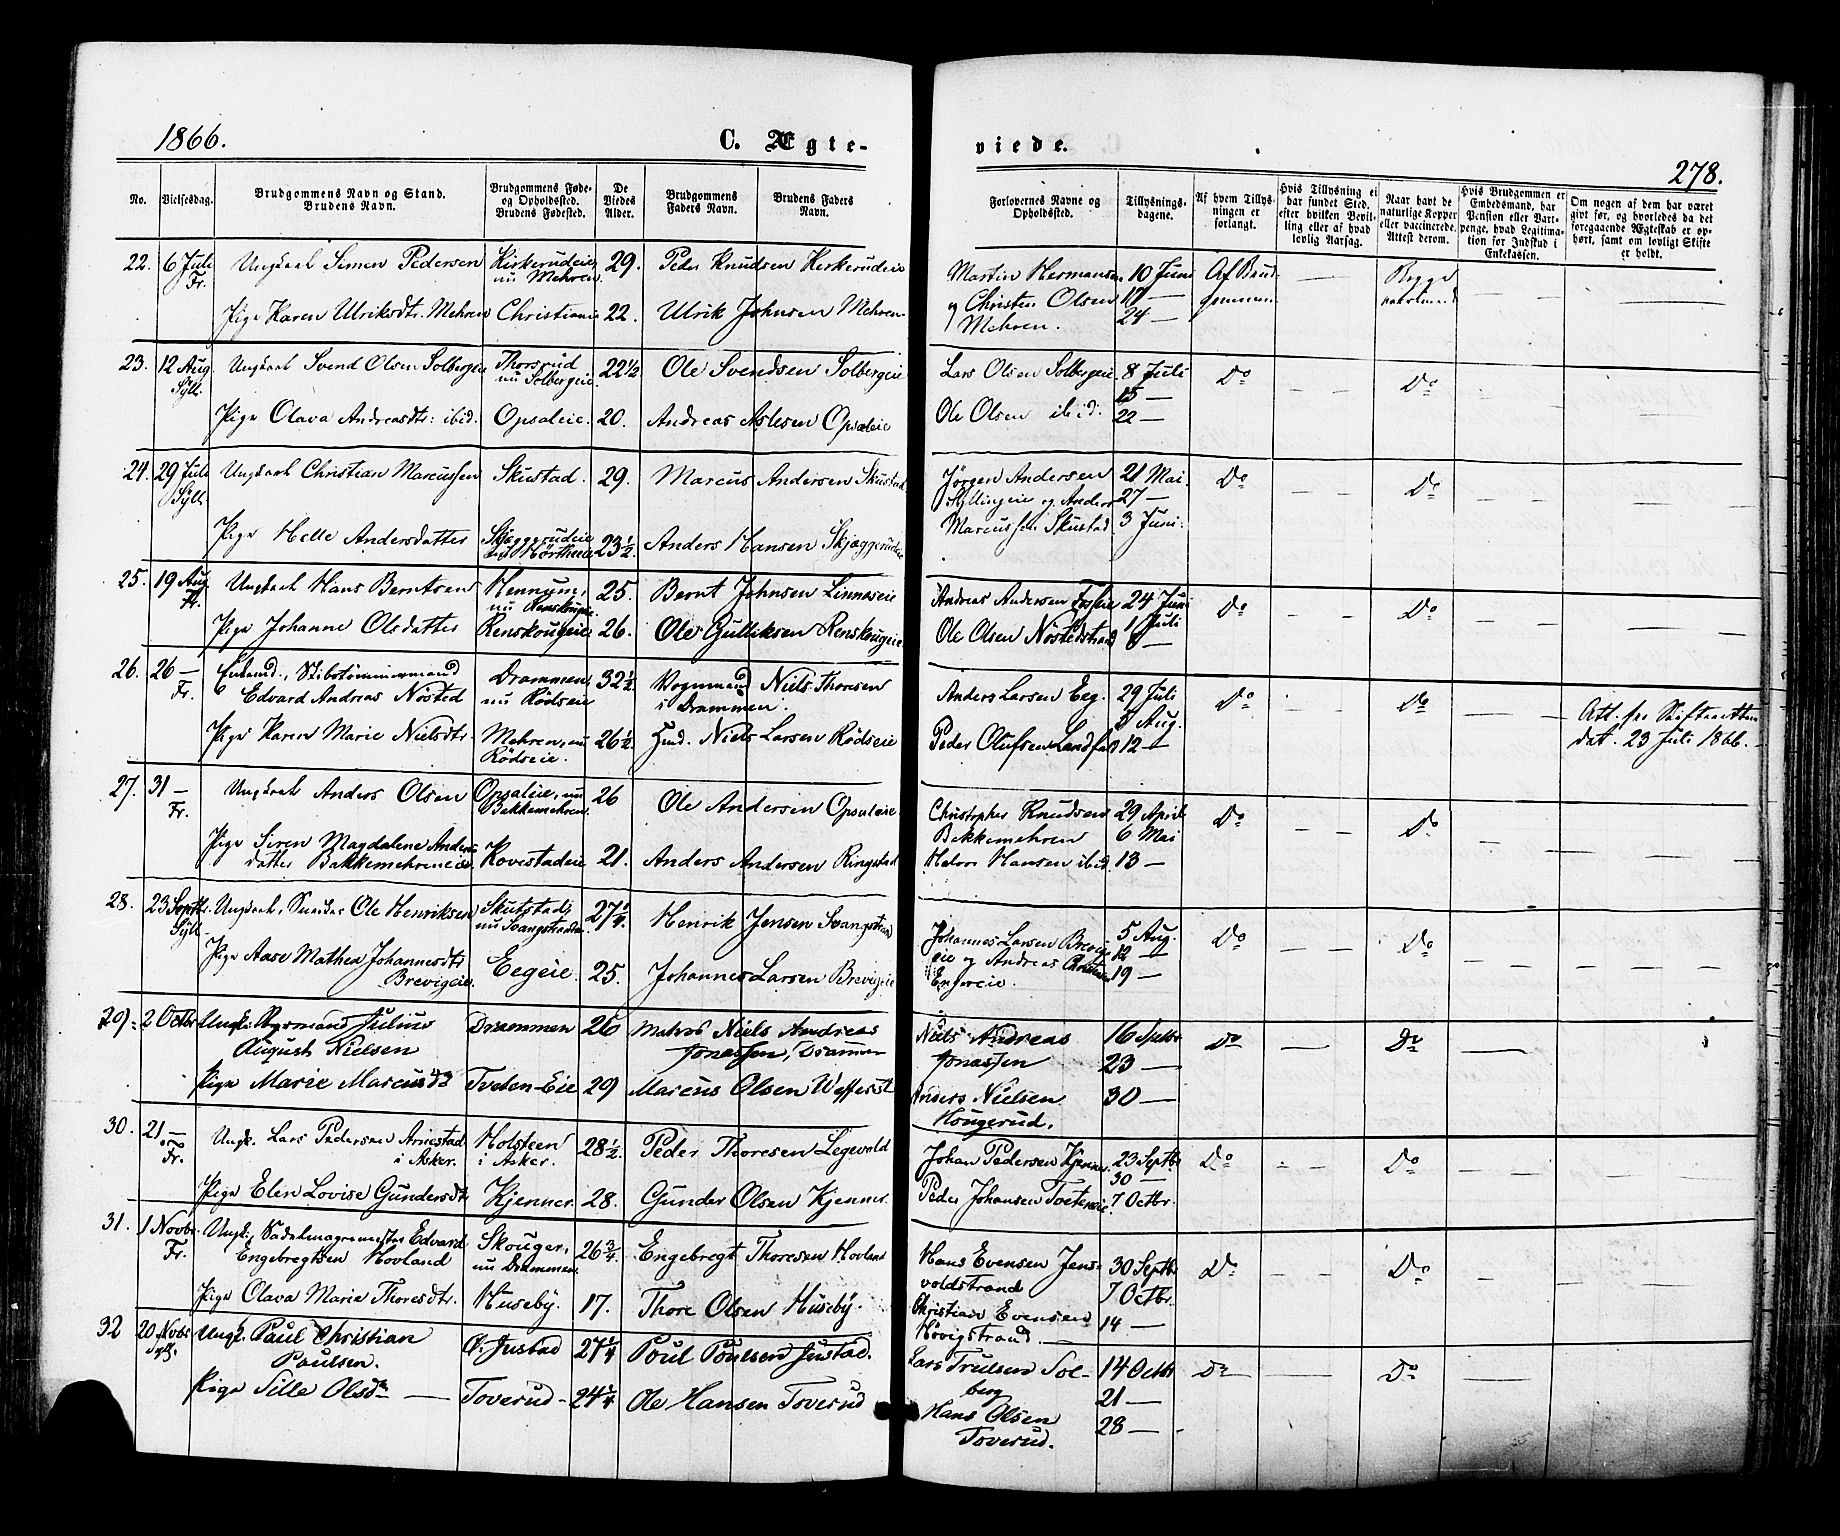 1866.
C. Ægte-
viede.
278.
No.
Vielsesdag.
Brudgommens Navn og Stand.
Brudens Navn.
Brudgommens Føde-
og Opholdssted.
Brudens Fødested.
De
Viedes
Alder.
Brudgommens
Faders Navn.
Brudens Faders
Navn.
Forlovernes Navne og
Opholdssted.
Tillysnings-
dagene.
Af hvem Tillys-
ningen er
forlangt.
Hvis Tillysning ei
har fundet Sted,
efter hvilken Bevil-
ling eller af hvad
lovlig Aarsag.
Naar havt de
naturlige Kopper
eller vaccinerede.
Attest derom.
Hvis Brudgommen er
Embedsmand, har
Pension eller Vart-
penge, hvad Legitima-
tion for Indskud i
Enkekassen.
Om nogen af dem har været
gift før, og hvorledes da det
foregaaende Ægteskab er op-
hørt, samt om lovligt Skifte
er holdt.
22. 6 Juli Ungkarl Simen Pedersen Kirkerudeie 29. Peder Knudsen Kirkerudeie Martin Hermansen 10 Juni Af Brud- — Begge — — —
Fr. nu Mehren. og Christen Olsen 17 — gommen
Pige Karen Ulriksdtr. Mehren Christiania 22. Ulrik Johnsen Mehren. Mehren. 24 —
23. 12 Aug Ungkarl Svend Olsen Solbergeie Thorsrud 22½ Ole Svendsen Solbergeie Lars Olsen Solbergeie 8 Juli Do — — Do — — —
Syll. nu Solbergeie 15 —
Pige Olava Andreasdtr: ibid. Opsaleie. 20. Andreas Aslesen Opsaleie Ole Olsen ibid. 22 —
24. 29 Juli Ungkarl Christian Marcussen Skustad. 29. Marcus Andersen Skustad Jørgen Andersen 21 Mai Do — — Do — — —
Syll. Syllingeie og Anders 27 —
Pige Helle Andersdatter Skjæggerudeie 23½. Anders Hansen Skjæggerudeie Marcussen Skustad 3 Juni.
25. 19 Aug Ungkarl Hans Berntsen Hennum, 25. Bernt Johnsen Linneseie Andreas Andersen 24 Juni Do — — Do — — —
Fr. nu Renskougeie 1 Juli
Pige Johanne Olsdatter Renskougeie 26. Ole Gulliksen Renskougeie Ole Olsen Nøstedstrand 8 —
26. 26 — Enkemd., Skibstømmermand Drammen, 32½. Vognmand Niels Thoresen Anders Larsen Eeg. 29 Juli Do — — Do — — Att. fra Skifteretten
Fr. Edvard Andreas Nøsted nu Rødseie i Drammen. 5 Aug. dat. 23 Juli 1866.
Pige Karen Marie Nielsdtr. Mehren, nu 26½. Hmd. Niels Larsen Rødseie Peder Olufsen Landfald 12 —
Rødseie.
27. 31 — Ungkarl Anders Olsen Opsaleie, nu 26 Ole Andersen Opsaleie Christopher Knudsen 29 April Do — — Do — — —
Fr. Bakkemehren. Bakkemehren 6 Mai
Pige Siren Magdalene Anders-
datter Bakkemehreneie. Kovestadeie 21. Anders Andersen Ringstad Hans Hansen ibid. 13 —
28. 23 Septbr. Ungkarl, Ole Henriksen Skutstad, 27¼. Henrik Jensen Svangstrand Johannes Larsen Brevig- 5 Aug. Do — — Do — — —
Syll. nu Svangstranden. eie og Andreas 12 —
Pige Aase Mathea Johannesdtr Eegeie. 25. Johannes Larsen Brevigeie 19 —
Brevigeie.
29. 2 Octbr. Ungk. Styrmand Julius Drammen 26 Matros Niels Andreas Niels Andreas 16 Septbr Do — Do — — —
August Nielsen Jonassen, Drammen Jonassen 23 —
Pige Marie Marcusd. Tveten-Eie 29 Marcus Olsen Anders Nielsen 30 —
Hougerud.
30. 21 — Ungk. Lars Pedersen Arnestad Holsteen 28½. Peder Thoresen Legevold Johan Pedersen Kjenner 23 Septbr Do — — Do — — —
Fr. i Asker. i Asker. 30 —
Pige Elen Lovise Gundersdtr Kjenner. 28. Gunder Olsen Kjenner. Peder Johansen Tveteneie. 7 Octbr.
31. 1 Novbr. Ungk., Sadelmagermester Edvard Skouger, 26¾. Engebregt Thoresen Hovland Hans Evensen Jens- 30 Septbr Do — — Do — — —
Fr. Engebregtsen Hovland nu Drammen. voldstrand 7 Octbr.
Pige Olava Marie Thoresdtr. Huseby. 17. Thore Olsen Huseby. Christian Evensen 14 —
Høvigstrand.
32 20 Novbr Ungk. Paul Christian Ø. Justad 27¼ Poul Poulsen Justad. Lars Trulsen Sol- 14 Octbr Do — Do — — —
Syll. Paulsen. berg 21 —
Pige Sille Olsdr — Toverud 24¼ Ole Hansen Toverud Hans Olsen 28 —
Toverud.